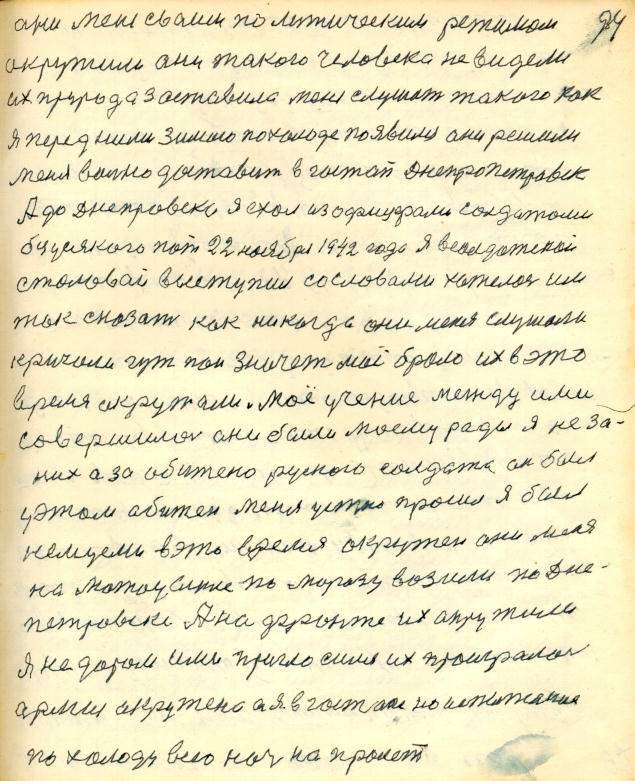 94
ани мене сваим политическим режимом
акружили ани такого человека не видели
их природа заставила мене слушат такого как
я перед ними зимою по холоде появился ани решили
меня вално доставит в гостап Днепропетровск
А до Днепровска я ехол из офицерами солдатоми
22 ноября 1942 года я в солдатской
столовай выступил со словами хателос им
так сказат как никогда они меня слушали
кричали гут пан значет моё брало их в это
время акружали. Моё учение между ими
совершилос ани были моему рады я не за-
них а за обижено руского солдата он был
уэтом абижен меня устно просил я был
немцеми в это время акружен они меня
на мотоцикле по морозу возили по Дне-
петровске А на фронте их акружили
я недаром ими приглосился их проигралос
армия акружена а я в гостапе на
по холоду всю ноч на пролет